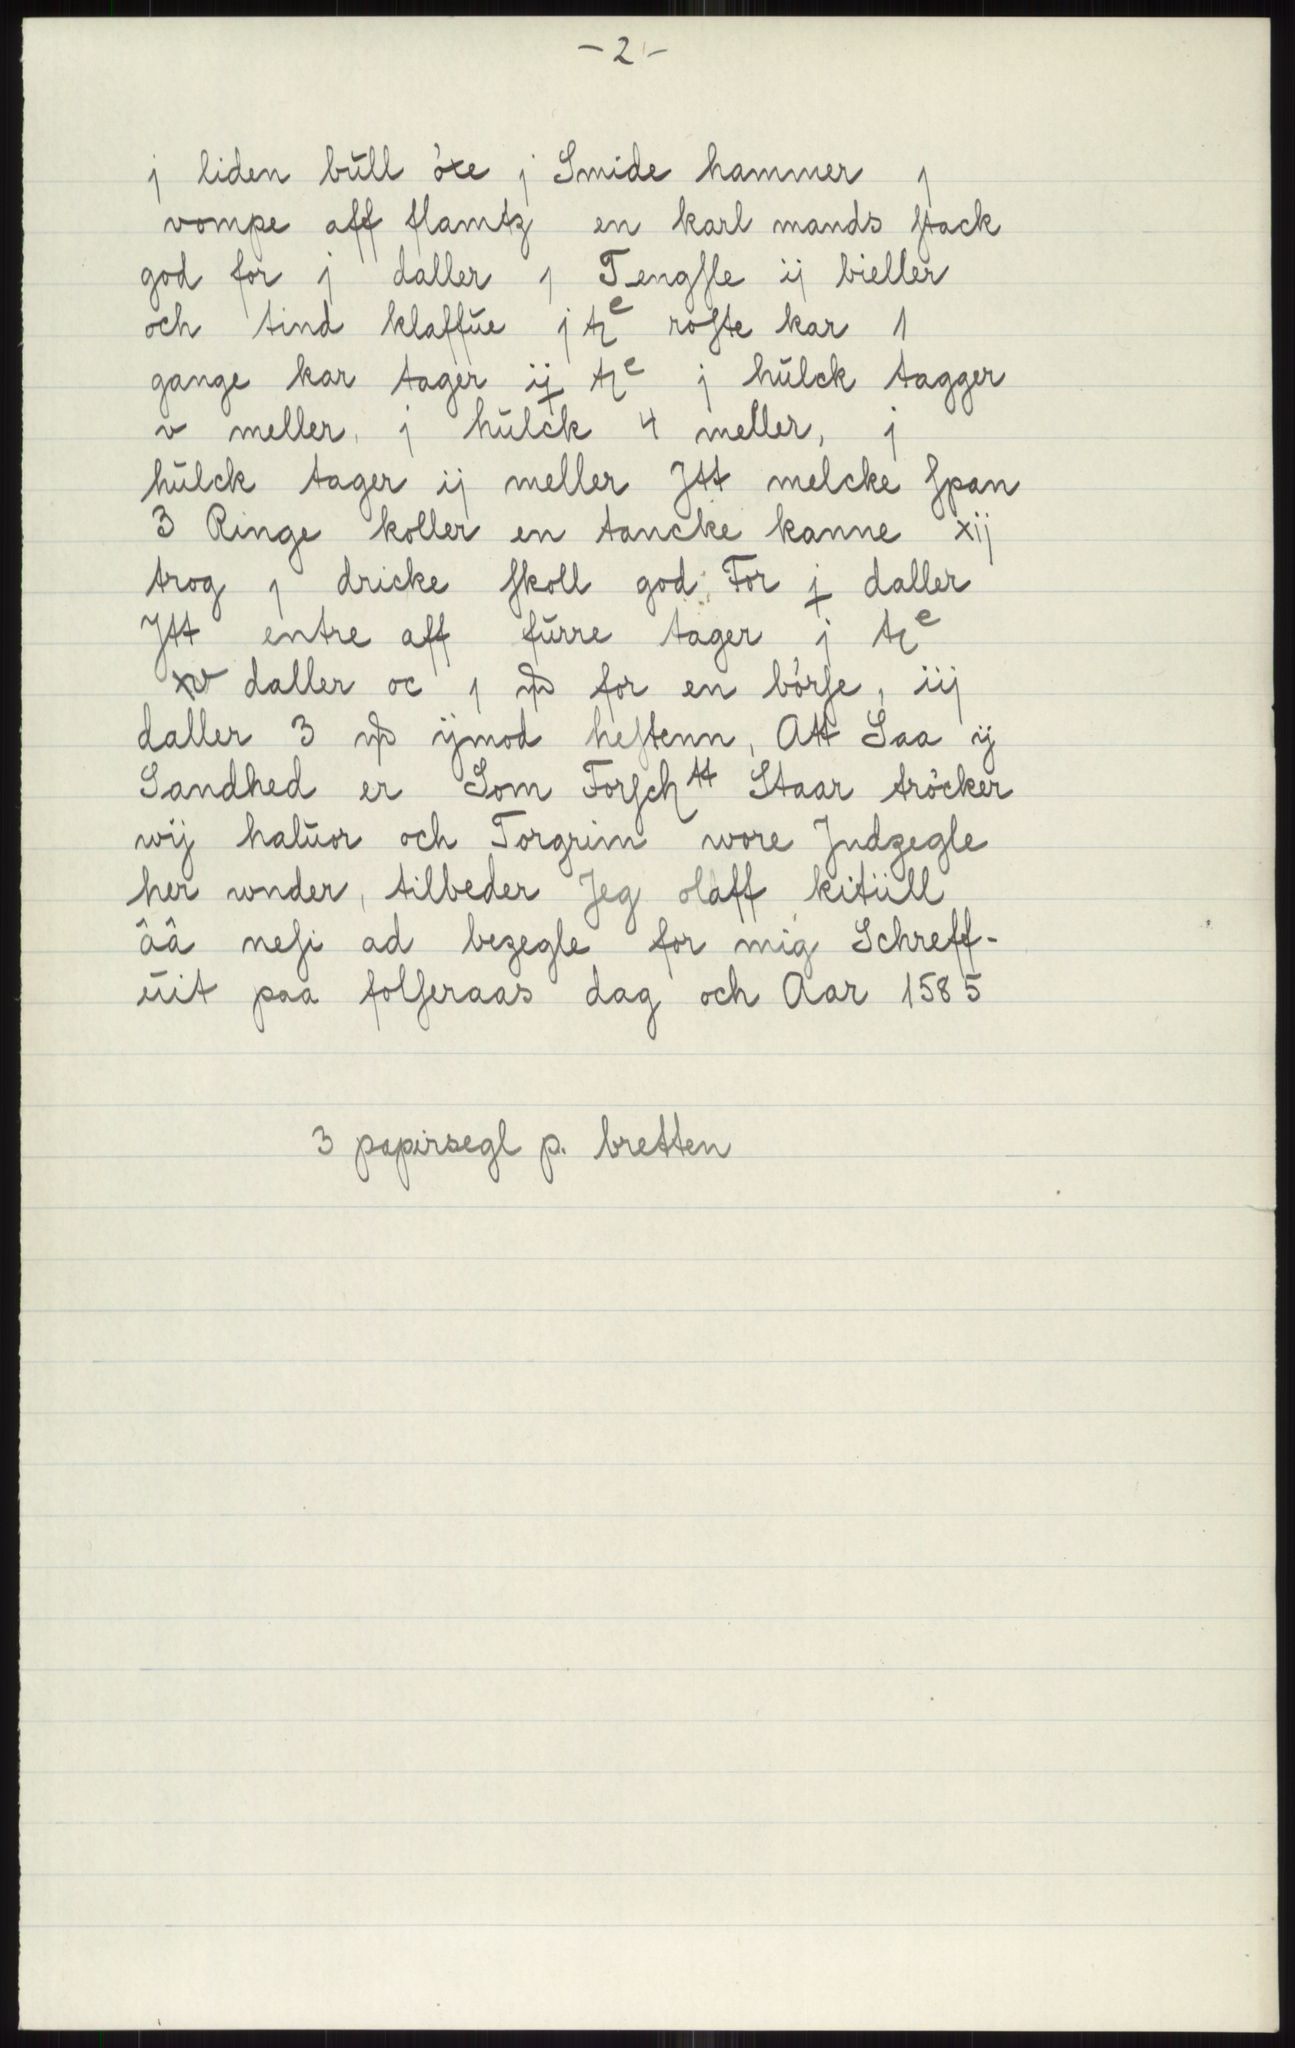 - 2 -
j liden bŭll óxe j Smide hammer j
vompe aff flamtz en karl mands stack
god for j daller j Tengsle ij bieller
och tind klaffŭe j tr^e roste kar 1
gange kar tager ij tr^e j hŭlck tagger
v meller, j hŭlck 4 meller, j
hŭlck tager ij meller Jtt melcke span
3 Ringe koller en tancke kanne xij
trog j dricke skoll god For j daller
Jtt entre aff fŭrre tager j tr^e
xv daller oc j for en bórse, iij
daller 3 ÿmod hestenn, Att Saa ÿ
Sandhed er Som Forsch^tt Staar trócker
wÿ halŭor och Torgrim wore Jndzegle
her wnder, tilbeder Jeg olaff kitüll
ââ nesi ad bezegle for mig Schreff-
ŭit paa folseraas dag och Aar 1585
3 papirsegl p. bretten